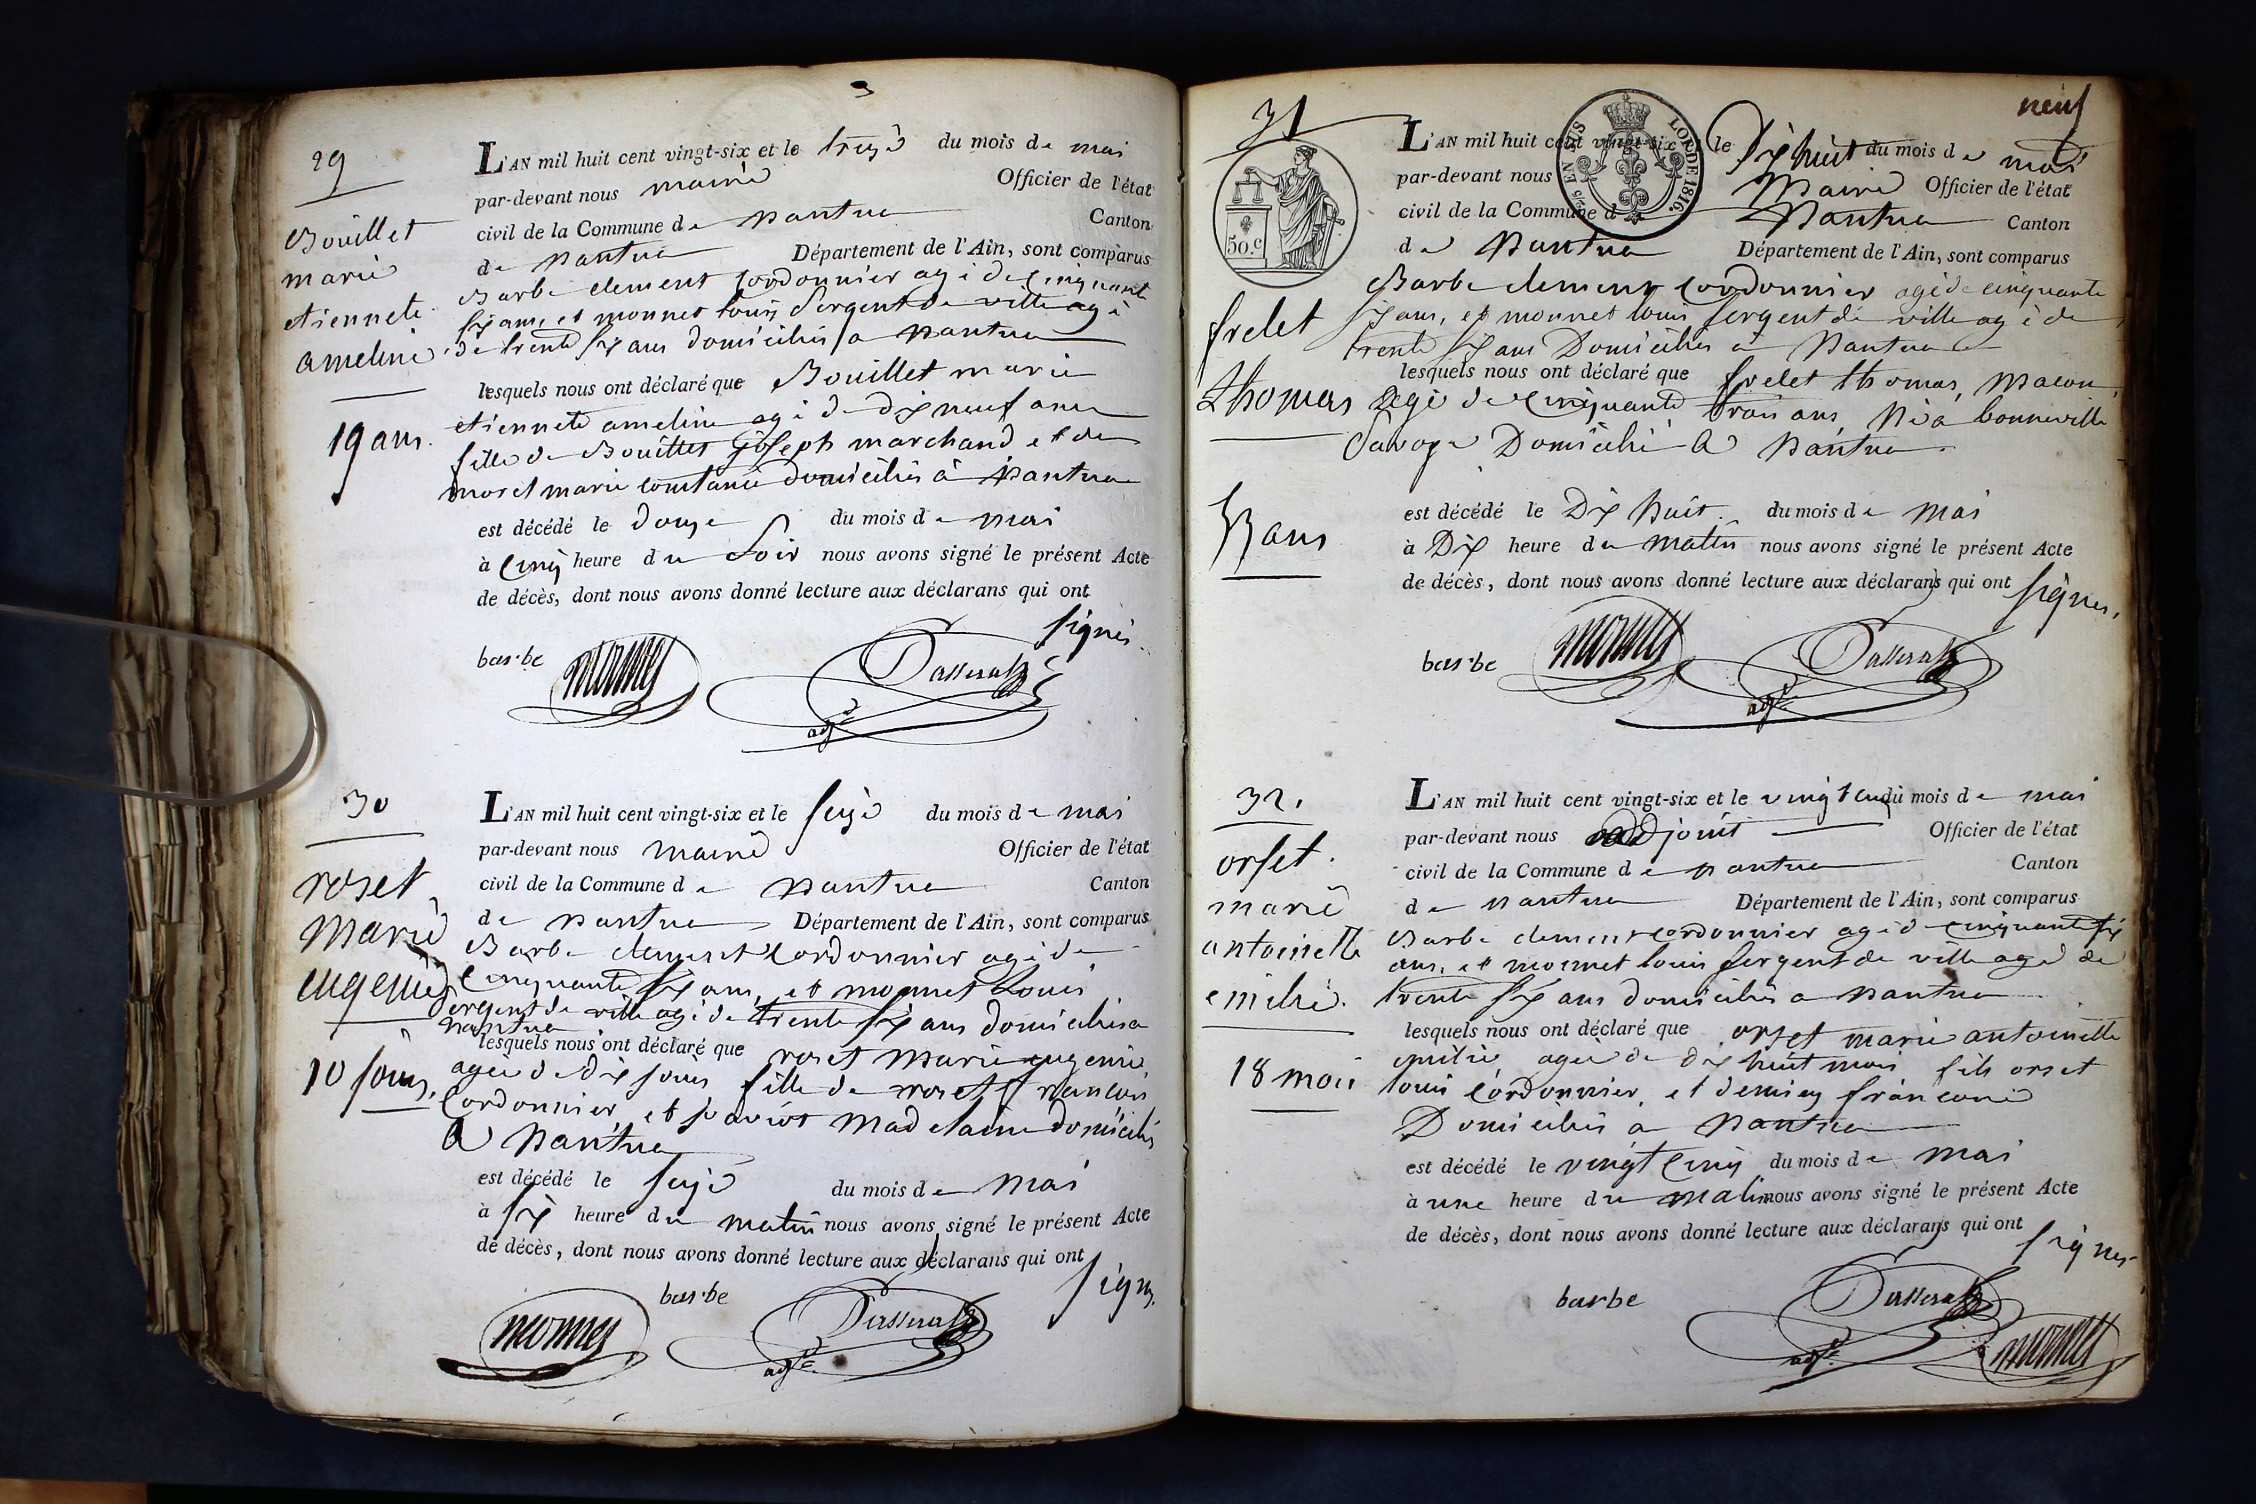 29
Bouillet
marie
etiennete
ameline
19 ans.
L'AN mil huit cent vingt-six et le treize du mois de mai
par-devant nous maire Officier de l'état
civil de la Commune de nantua Canton
de nantua Département de l'Ain, sont comparus
Barbe clement Cordonnier agé de Cinquante
six ans, et monnet louis Sergent de ville agé
de trente six ans domiciliés a nantua
lesquels nous ont déclaré que Bouillet marie
etiennete ameline agé de dix neuf ans
fille de Bouillet joseph marchand et de
morel marie constance domiciliés à nantua
est décédé le douze du mois de mai
à Cinq heure du Soir nous avons signé le présent Acte
de décès, dont nous avons donné lecture aux déclarans qui ont
signés.
barbe monnet Passerat
adjt
30
roset
Marie
eugenie
10 jours.
L'AN mil huit cent vingt-six et le seize du mois de mai
par-devant nous maire Officier de l'état
civil de la Commune de nantua Canton
de nantua Département de l'Ain, sont comparus
Barbe clement Cordonnier agé de
Cinquante six ans, et monnet Louis
Sergent de ville agé de trente six ans domiciliés a
nantua
lesquels nous ont déclaré que roset Marie eugenie
agée de dix jours fille de roset francois
Cordonnier, et Madelaine domiciliés
A nantua
est décédé le seize du mois de Mai
à six heure du matin nous avons signé le présent Acte
de décès, dont nous avons donné lecture aux déclarans qui ont
signés.
barbe
monnet Passerat
adjt
neuf
31
50.c
5/0 EN SUS LOI DE 1816.
frelet
thomas
53 ans
L'AN mil huit cent vingt-six et le Dix huit du mois de mai
par-devant nous Maire Officier de l'état
civil de la Commune de Nantua Canton
de Nantua Département de l'Ain, sont comparus
Barbe clement Cordonnier agé de cinquante
six ans, et monnet louis sergent de ville agé de
trente six ans Domiciliés a Nantua
lesquels nous ont déclaré que frelet thomas, Macon,
agé de Cinquante trois ans Né a bonneville
Savoye Domicilié A Nantua.
est décédé le Dix huit du mois de Mai
à Dix heure du matin nous avons signé le présent Acte
de décès, dont nous avons donné lecture aux déclarans qui ont signés.
barbe monnet Passerat
adjt
32.
orset.
marie
antoinette
emilie.
18 mois
L'AN mil huit cent vingt-six et le vingt cinq du mois de mai
par-devant nous adjoint Officier de l'état
civil de la Commune de nantua Canton
de nantua Département de l'Ain, sont comparus
Barbe clement cordonnier agé de Cinquante six
ans, et monnet louis sergent de ville agé de
trente six ans domiciliés a nantua
lesquels nous ont déclaré que orset marie antoinette
emilie agée de dix huit mois fils orset
louis Cordonnier, et
Domiciliés a nantua
est décédé le vingt Cinq du mois de mai
à une heure du matin nous avons signé le présent Acte
de décès, dont nous avons donné lecture aux déclarans qui ont
signés
barbe Passerat
adjt monnet